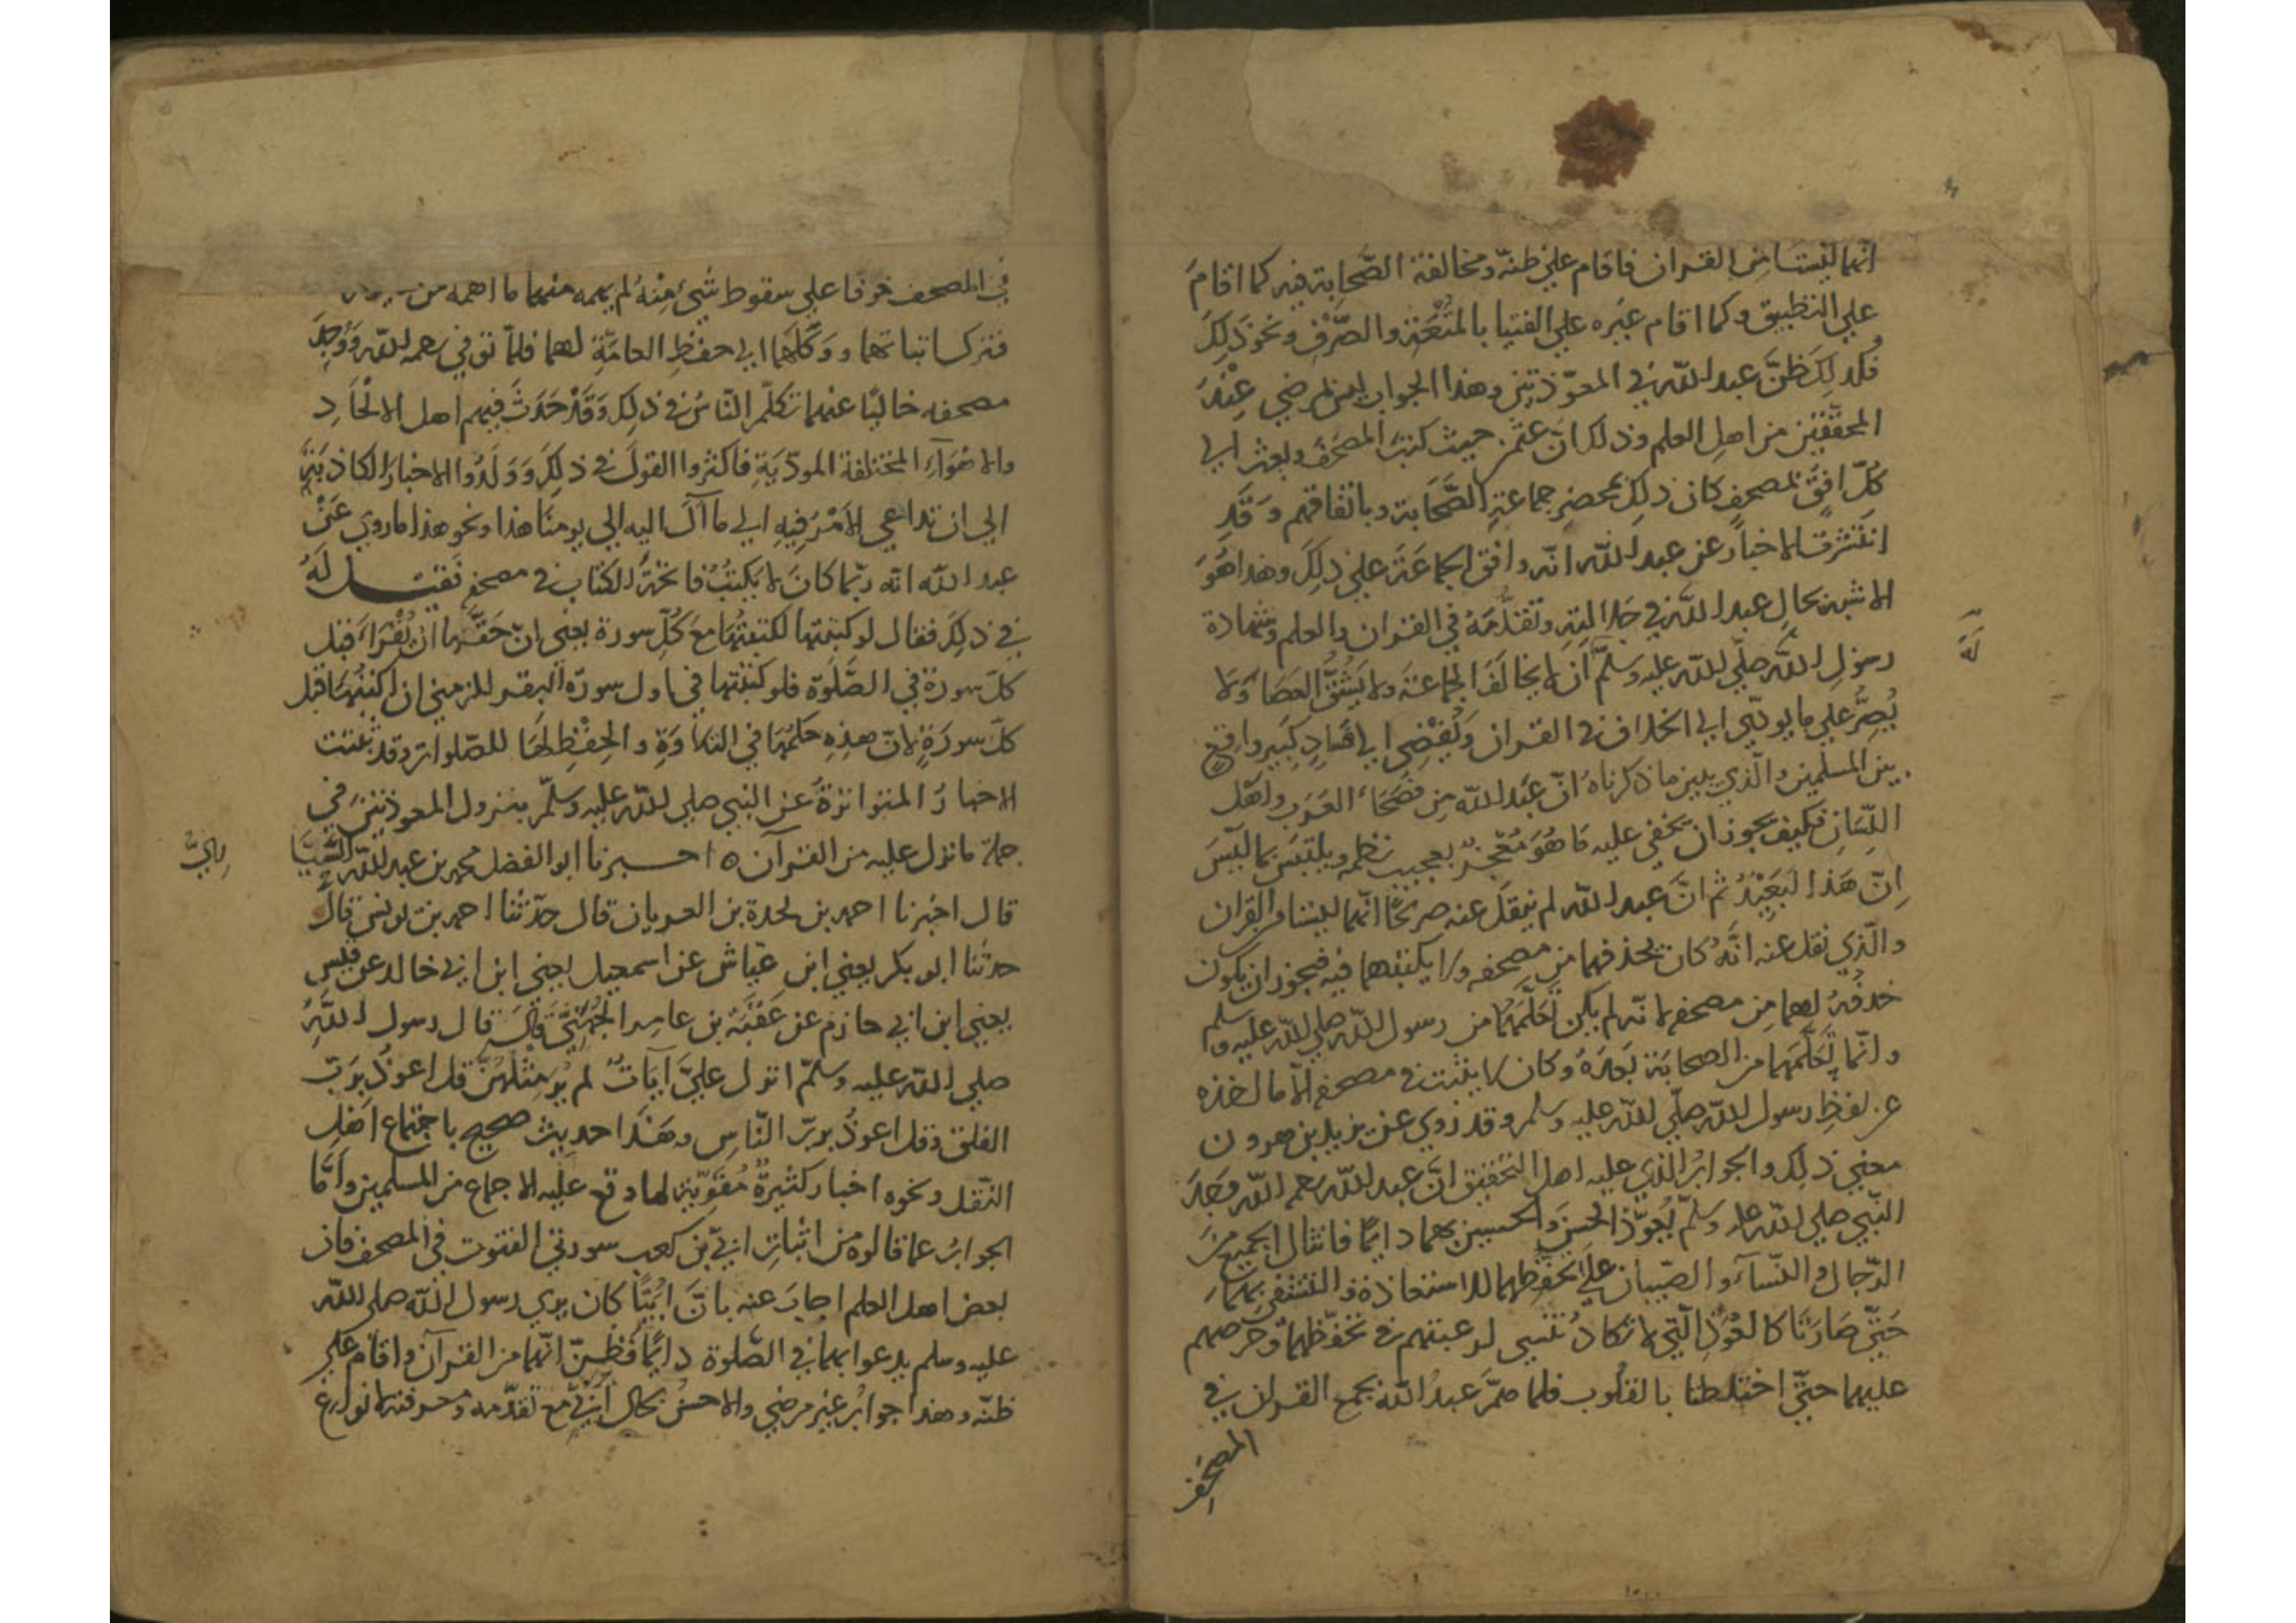 انهما ليستا من القران فاقام علي ظنه ومخالفة الصَّحابة فيه كما اقامَ
علي التطبيق وكما اقام غيره علي الفتيا بالمتْعَةِ والصّرْفِ ونحو ذَلِكَ
فكذلِكَ ظنَّ عبد اللّه في المعوّذتين وهذا الجواب ليس بمرضي عِنْدَ
المحقّقين من اهلِ العلم وذلك انّ عثمن حيث كتبَ المصْحَفَ وبعث الي
كُلّ افقٍ بمصحفٍ كان ذلِكَ بمحضر جماعة الصَّحَابة وباتفاقهم وَقَدِ
انتشرت الاخبار عن عبد اللّه انّه وافق الجماعَةَ علي ذلِكَ وهذا هُوَ
الاشبه بحالِ عبد اللَّه في جلالتِهِ وتقدُّمَهُ في القران والعلم وشهادة
رسولِ اللَّه صلّي اللّه عليه وسلّم أن لا يخالفَ الجماعَة ولا يَشُقُّ العصَا وَلا
يُصِرُّ علي ما يودّي الي الخلاف في القران وَيُفْضِي الي فسَادٍ كبير واقع
بين المسلمين والّذي يبين ما ذكرناهُ انّ عَبد اللّه مِن فُصَحَاءِ العَرَبِ واهْلِ
اللّسَانِ فكيف يجوز ان يخفي عليه مَا هُوَ مُعْجِزٌ بعجيب نظمه ويلتبَس بما ليْسَ
اِنّ هَذا لبَعِيْدٌ ثم انَّ عبد اللّه لم ينقلَ عنه صريحًا انّهما ليستا من القران
والّذي نقل عنه انَّهُ كان يحذفهما من مصحفه ولا يكتبهما فيه فيجوز ان يكون
حذفُهُ لهما مِن مصحفه لانّه لم يكن تَعَلّمَهُمَا من رسول اللّه صلي اللّه عليه وسلم
وانّما تَعَلّمَهما من الصحابَة بَعدَهُ وكان لا يثبت في مصحفه الّا ما اخذه
عن لفظِ رسول اللّه صلّي اللّه عليه وسلم وقد رُوي عن يزيد بن هرون
معني ذلِك والجوابُ الّذي عليه اهل التحقيق انَّ عبد اللّه رحمه اللّه وجدَ
النّبي صلي اللّه عليه وسلّم يُعوّذ الحسنَ والحسين بهما دائمًا فانثال الجميع منَ
الرّجال والنّسآءِ والصّبيان علي تحفّظهما للاستعاذة والتشفي بهما
حَتّي صَارَتَا كالعُوَذِ الّتي لا تكادُ تنسي لرغبتهم في تحفّظهما وحرصهم
عليهما حتّي اختلطتا بالقلُوب فلما همَّ عبدُ اللّه بجمع القران في
المصحف
في المصحف خوفا علي سقوط شيءٍ مِنْهُ لم يهمه منهما ما اهمه من
فترك اثباتهما ووَكّلَهُمَا الي حفظِ العامّةِ لهما فلمّا توفي رحمه اللّه وَوُجِدَ
مصحفه خاليًا عنهما تكلّم النّاسُ في ذلِكَ وَقَدْ حَدَثَ فيهم اهل الالْحَادِ
والاهْوَآءِ المختلفة المودّيَةِ فاكثروا القولَ في ذلِكَ وَوَلّدُوا الاخبارَ الكاذبَةَ
الي ان تداعي الأمْرُ فِيهِ الي ما آلَ اليه الي يومِنَا هذا ونحو هذا ما روي عَنْ
عبد اللّه انّه ربّما كانَ لا يكتبُ فاتحةَ الكتاب في مصحفهِ فقيل لَهُ
في ذلِكَ فقال لو كتبتها لكتبتُهَا معَ كُلِّ سورة يعني انّ حَقَّهَا ان تُقْرَاءَ قبل
كلّ سورة في الصَّلوة فلو كتبتها في اول سورة البقره للزمني ان اكتبَهَا قبل
كلّ سورَةٍ لانّ هذِهِ حكمُهَا في التلاوَةِ والحِفْظِ لهَا للصّلوات وقد ثبتت
الاخبارُ المتواترةُ عن النبي صلي اللّه عليه وسَلّم بنزول المعوذتين في
جملة ما نزل عليه من القرآن ه اخبرنا ابو الفضل محمد بن عبد اللّه
قال اخبرنا احمد بن نجدة بن العريان قال حدّثنا احمد بن يونس قال
حدثنا ابو بكر يعني ابن عيّاش عن اسمعيل يعني ابن ابي خالد عن قيس
يعني ابن ابي حازم عن عقبَة بن عامر الجُهَنِيِّ قالَ قال رسول اللَّهِ
صلي اللّه عليه وسلّم انزل عليَّ آيَاتٌ لم يُرَ مِثلهُنَّ قل اعوذُ بِرَبِّ
الفلق وقل اعوذُ بربّ النّاسِ وهَذا حديث صحيح باجتماع اهْلِ
النّقل ونحوه اخبار كثيرةٌ مُقوّيَة لما وقع عليه الاجماع من المسلمين وأمَّا
الجوابُ عما قالوه من اثباتِ ابيّ بن كعب سورتي القنوت في المصحف فان
بعض اهل العلم اجابَ عنه بانّ ابَيًّا كان يري رسول اللّه صلي اللّه
عليه وسلم يدعوا بهما في الصّلوة دائمًا فظنّ انّهما من القرآن واقام علي
ظنّه وهذا جوابُ غير مرضي والاحسنُ بحال ابَيٍّ مع تقدّمه ومعرفته انواع